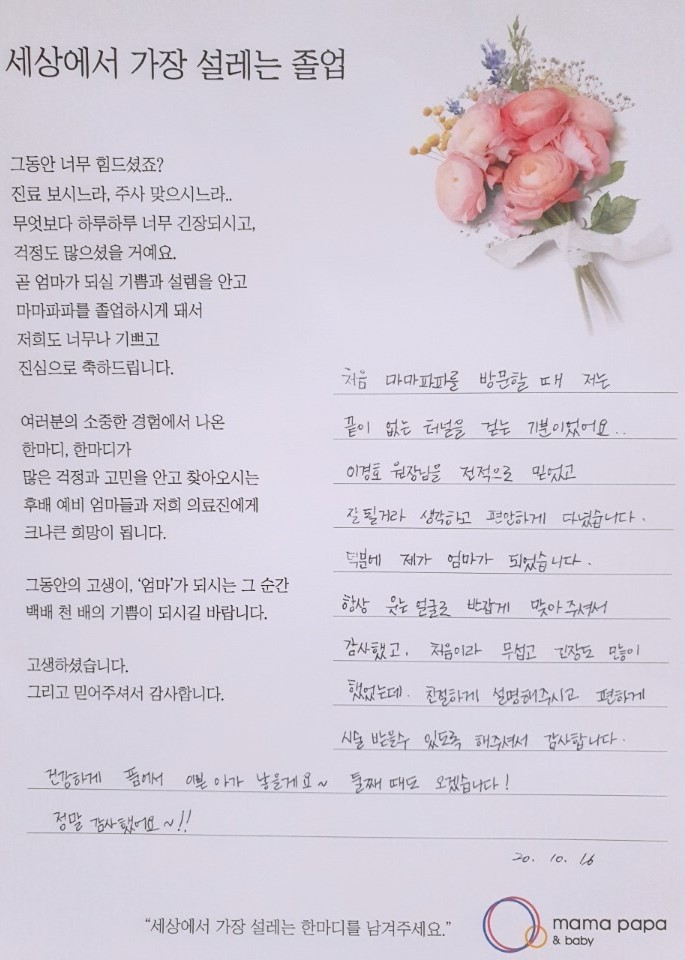 세상에서 가장 설레는 졸업
그동안 너무 힘드셨죠?
진료 보시느라, 주사 맞으시느라..
무엇보다 하루하루 너무 긴장되시고,
걱정도 많으셨을 거예요.
곧 엄마가 되실 기쁨과 설렘을 안고
마마파파를 졸업하시게 돼서
저희도 너무나 기쁘고
진심으로 축하드립니다.
여러분의 소중한 경험에서 나온
한마디, 한마디가
많은 걱정과 고민을 안고 찾아오시는
후배 예비 엄마들과 저희 의료진에게
크나큰 희망이 됩니다.
그동안의 고생이, '엄마'가 되시는 그 순간
백배 천 배의 기쁨이 되시길 바랍니다.
고생하셨습니다.
그리고 믿어주셔서 감사합니다.
처음 마마파파를 방문할 때 저는
끝이 없는 터널을 걷는 기분이었어요..
이경호 원장님을 전적으로 믿었고
잘 될거라 생각하고 편안하게 다녔습니다.
덕분에 제가 엄마가 되었습니다.
항상 웃는 얼굴로 반갑게 맞아주셔서
감사했고, 처음이라 무섭고 긴장도 많이
했었는데. 친절하게 설명해주시고 편하게
시술 받을수 있도록 해주셔서 감사합니다.
건강하게 품에서 이쁜 아가 낳을게요~ 둘째 때도 오겠습니다!
정말 감사했어요~!!
20. 10. 16
"세상에서 가장 설레는 한마디를 남겨주세요."
mama papa
& baby